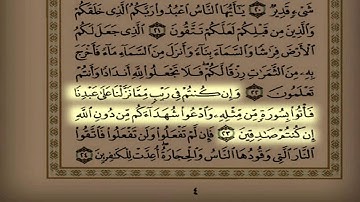 شَىْءٍ قَدِيرٌ ٢٠ يَٰٓأَيُّهَا ٱلنَّاسُ ٱعْبُدُوا۟ رَبَّكُمُ ٱلَّذِى خَلَقَكُمْ
وَٱلَّذِينَ مِن قَبْلِكُمْ لَعَلَّكُمْ تَتَّقُونَ ٢١ ٱلَّذِى جَعَلَ لَكُمُ
ٱلْأَرْضَ فِرَٰشًا وَٱلسَّمَآءَ بِنَآءً وَأَنزَلَ مِنَ ٱلسَّمَآءِ مَآءً فَأَخْرَجَ
بِهِۦ مِنَ ٱلثَّمَرَٰتِ رِزْقًا لَّكُمْ فَلَا تَجْعَلُوا۟ لِلَّهِ أَندَادًا وَأَنتُمْ
تَعْلَمُونَ ٢٢ وَإِن كُنتُمْ فِى رَيْبٍ مِّمَّا نَزَّلْنَا عَلَىٰ عَبْدِنَا
فَأْتُوا۟ بِسُورَةٍ مِّن مِّثْلِهِۦ وَٱدْعُوا۟ شُهَدَآءَكُم مِّن دُونِ ٱللَّهِ
إِن كُنتُمْ صَٰدِقِينَ ٢٣ فَإِن لَّمْ تَفْعَلُوا۟ وَلَن تَفْعَلُوا۟ فَٱتَّقُوا۟
ٱلنَّارَ ٱلَّتِى وَقُودُهَا ٱلنَّاسُ وَٱلْحِجَارَةُ أُعِدَّتْ لِلْكَٰفِرِينَ ٢٤
٤